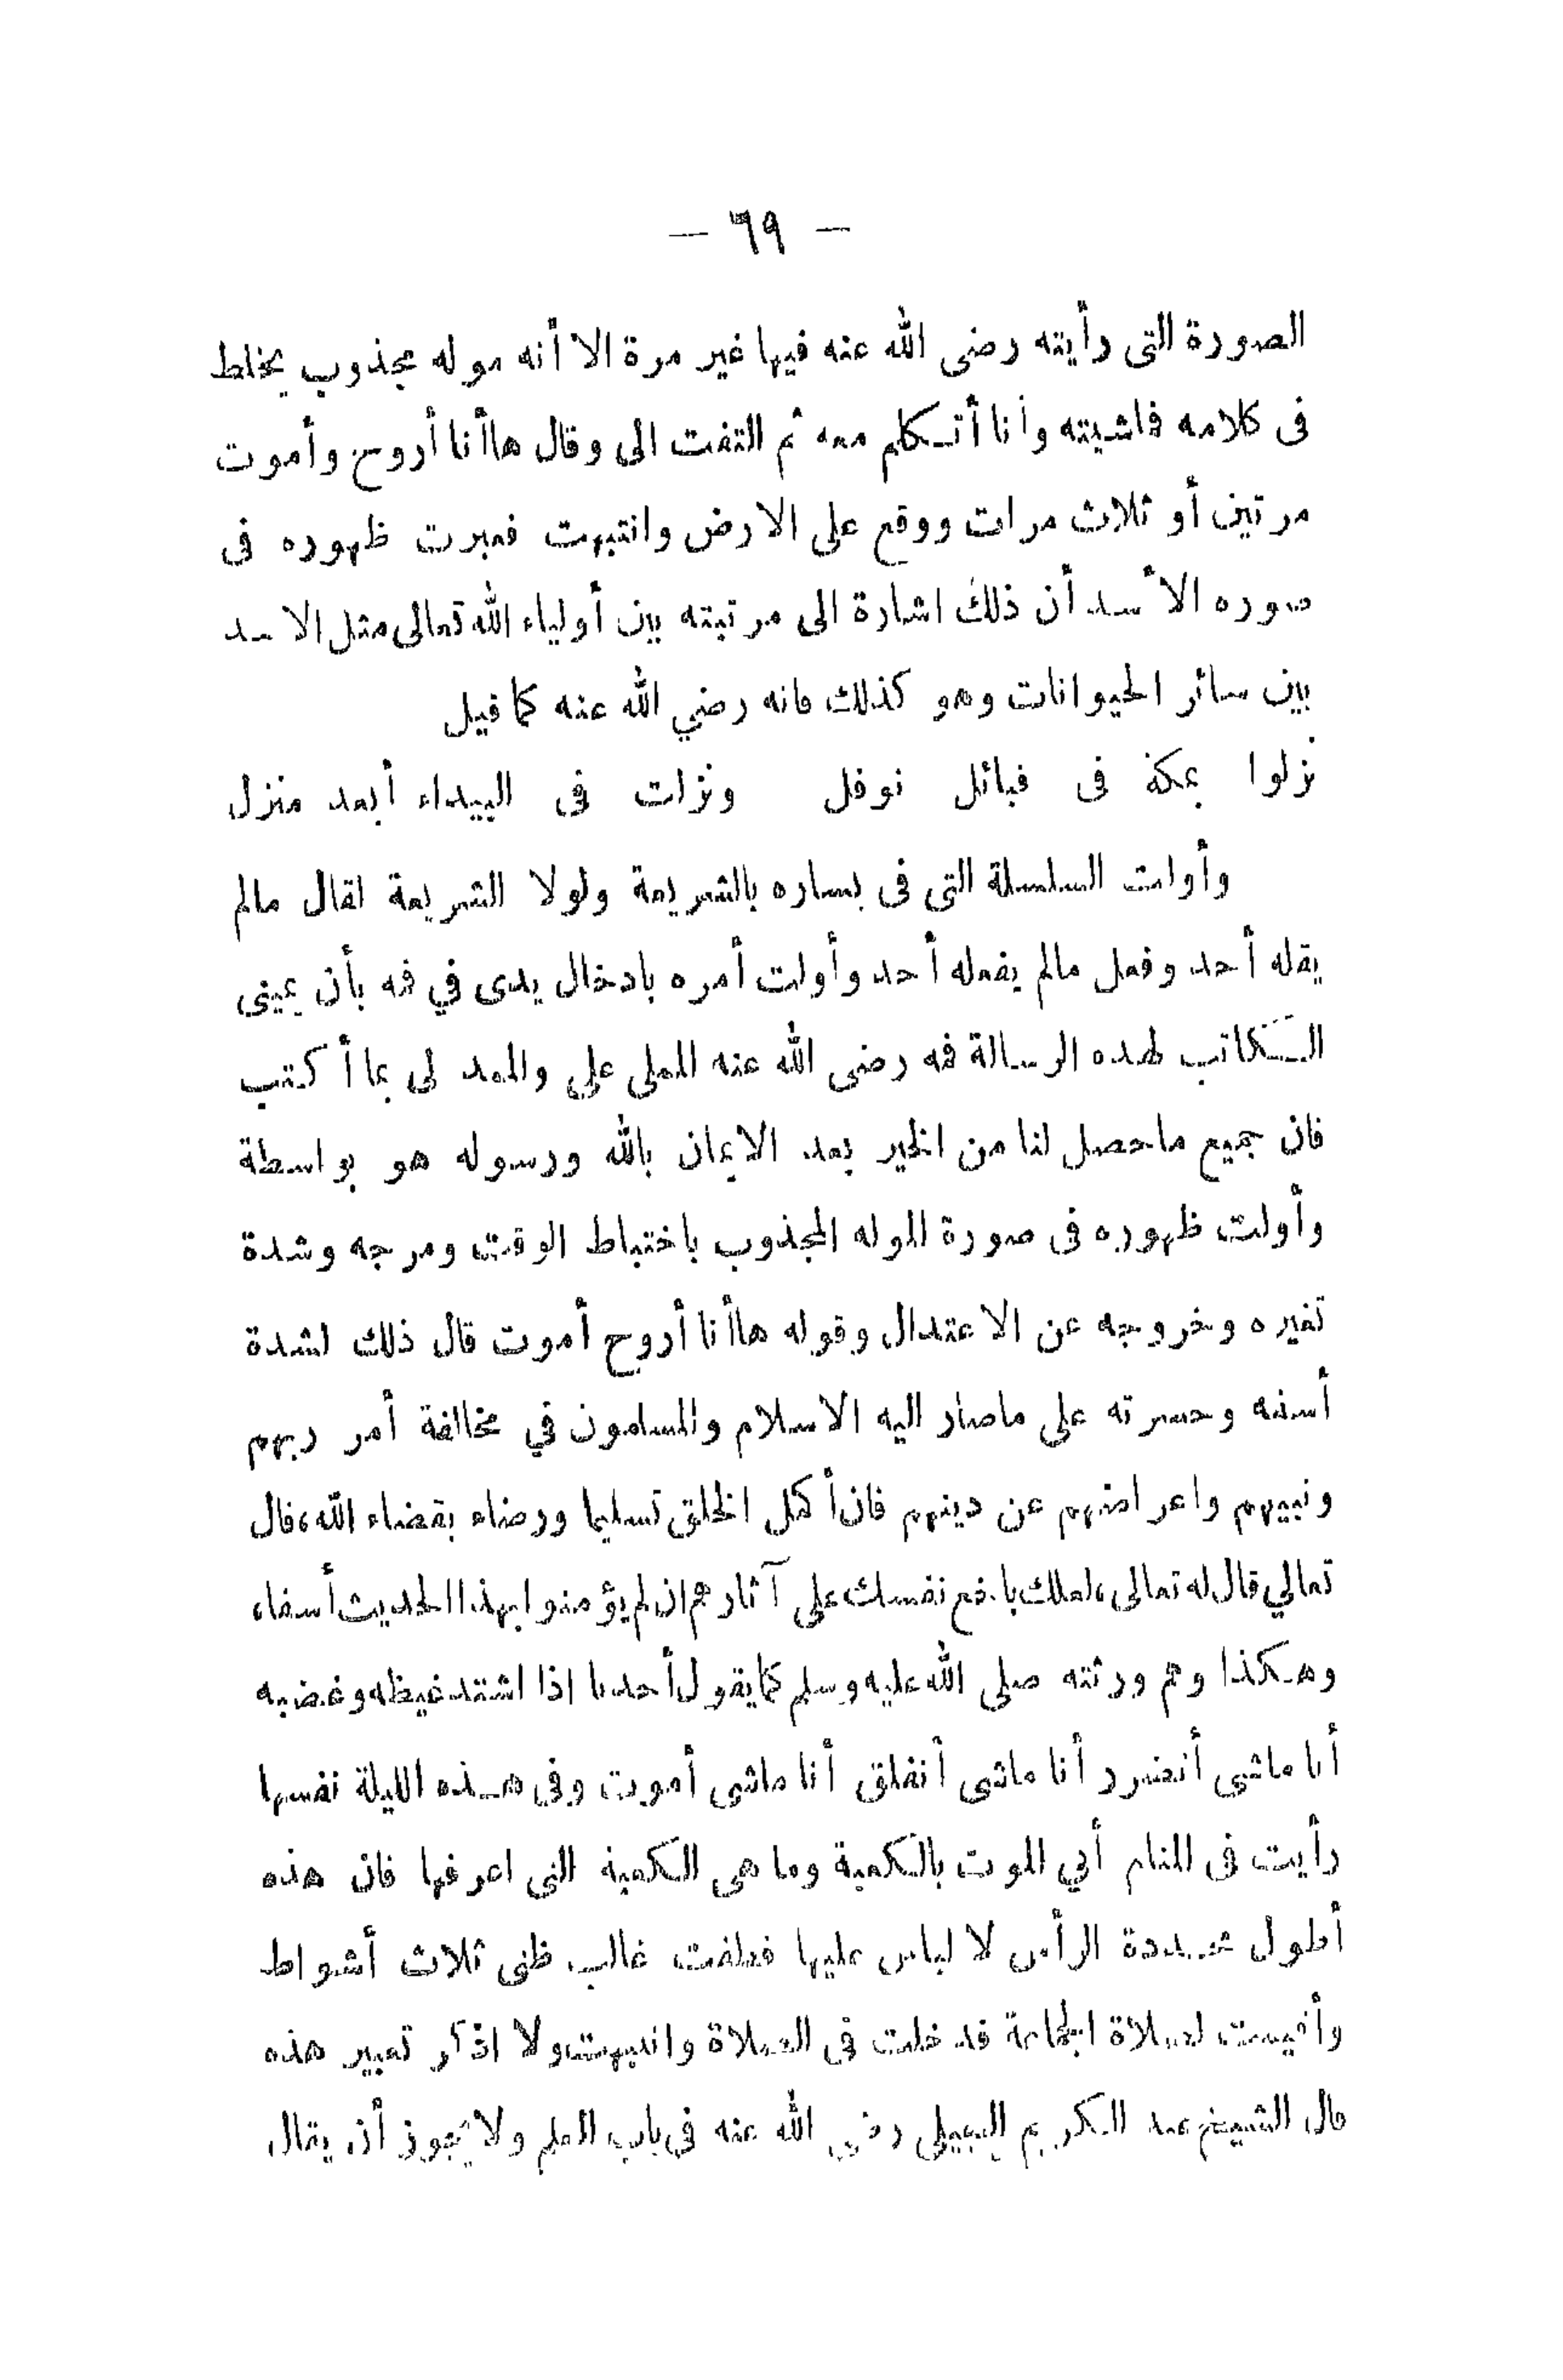 — ٦٩ —
الصورة التى رأيته رضى الله عنه فيها غير مرة الا أنه موله مجذوب يخلط
فى كلامه فماشيته وأنا أتكلم معه ثم التفت الى وقال هاأنا أروح وأموت
مرتين أو ثلاث مرات ووقع على الارض وانتبهت فعبرت ظهوره فى
صوره الأسد أن ذلك اشارة الى مرتبته بين أولياء الله تعالى مثل الاسد
بين سائر الحيوانات وهو كذلك فانه رضي الله عنه كما قيل
نزلوا بمكة فى قبائل نوفل ونزلت فى البيداء أبعد منزل
وأولت السلسلة التى فى يساره بالشريعة ولولا الشريعة لقال مالم
يقله أحد وفعل مالم يفعله أحد وأولت أمره بادخال يدى في فمه بأن يمينى
الكاتب لهذه الرسالة فمه رضى الله عنه المملى على والممد لى بما أكتب
فان جميع ماحصل لنا من الخير بعد الايمان بالله ورسوله هو بواسطة
وأولت ظهوره فى صورة الموله المجذوب باختباط الوقت ومرجه وشدة
تغيره وخروجه عن الاعتدال وقوله هاأنا أروح أموت قال ذلك لشدة
أسفه وحسرته على ماصار اليه الاسلام والمسلمون في مخالفة أمر ربهم
ونبيهم واعراضهم عن دينهم فان أكمل الخلق تسليما ورضاء بقضاء الله، قال
تعالي قال له تعالى، لعلك باخع نفسك على آثارهم ان لم يؤمنوا بهذا الحديث أسفا،
وهكذا وهم ورثته صلى الله عليه وسلم كما يقول أحدنا اذا اشتد غيظه وغضبه
أنا ماشى أنضرر أنا ماشى أنفلق أنا ماشى أموت وفى هذه الليلة نفسها
رأيت فى المنام أني الموت بالكعبة وما هى الكعبة التى اعرفها فان هذه
أطول محددة الرأس لا لباس عليها فطفت غالب ظنى ثلاث أشواط
وأقيمت لصلاة الجماعة فدخلت فى الصلاة وانتبهت ولا اذكر تعبير هذه
قال الشيخ عبد الكريم الجيلى رضى الله عنه فى باب العلم ولا يجوز أن يقال